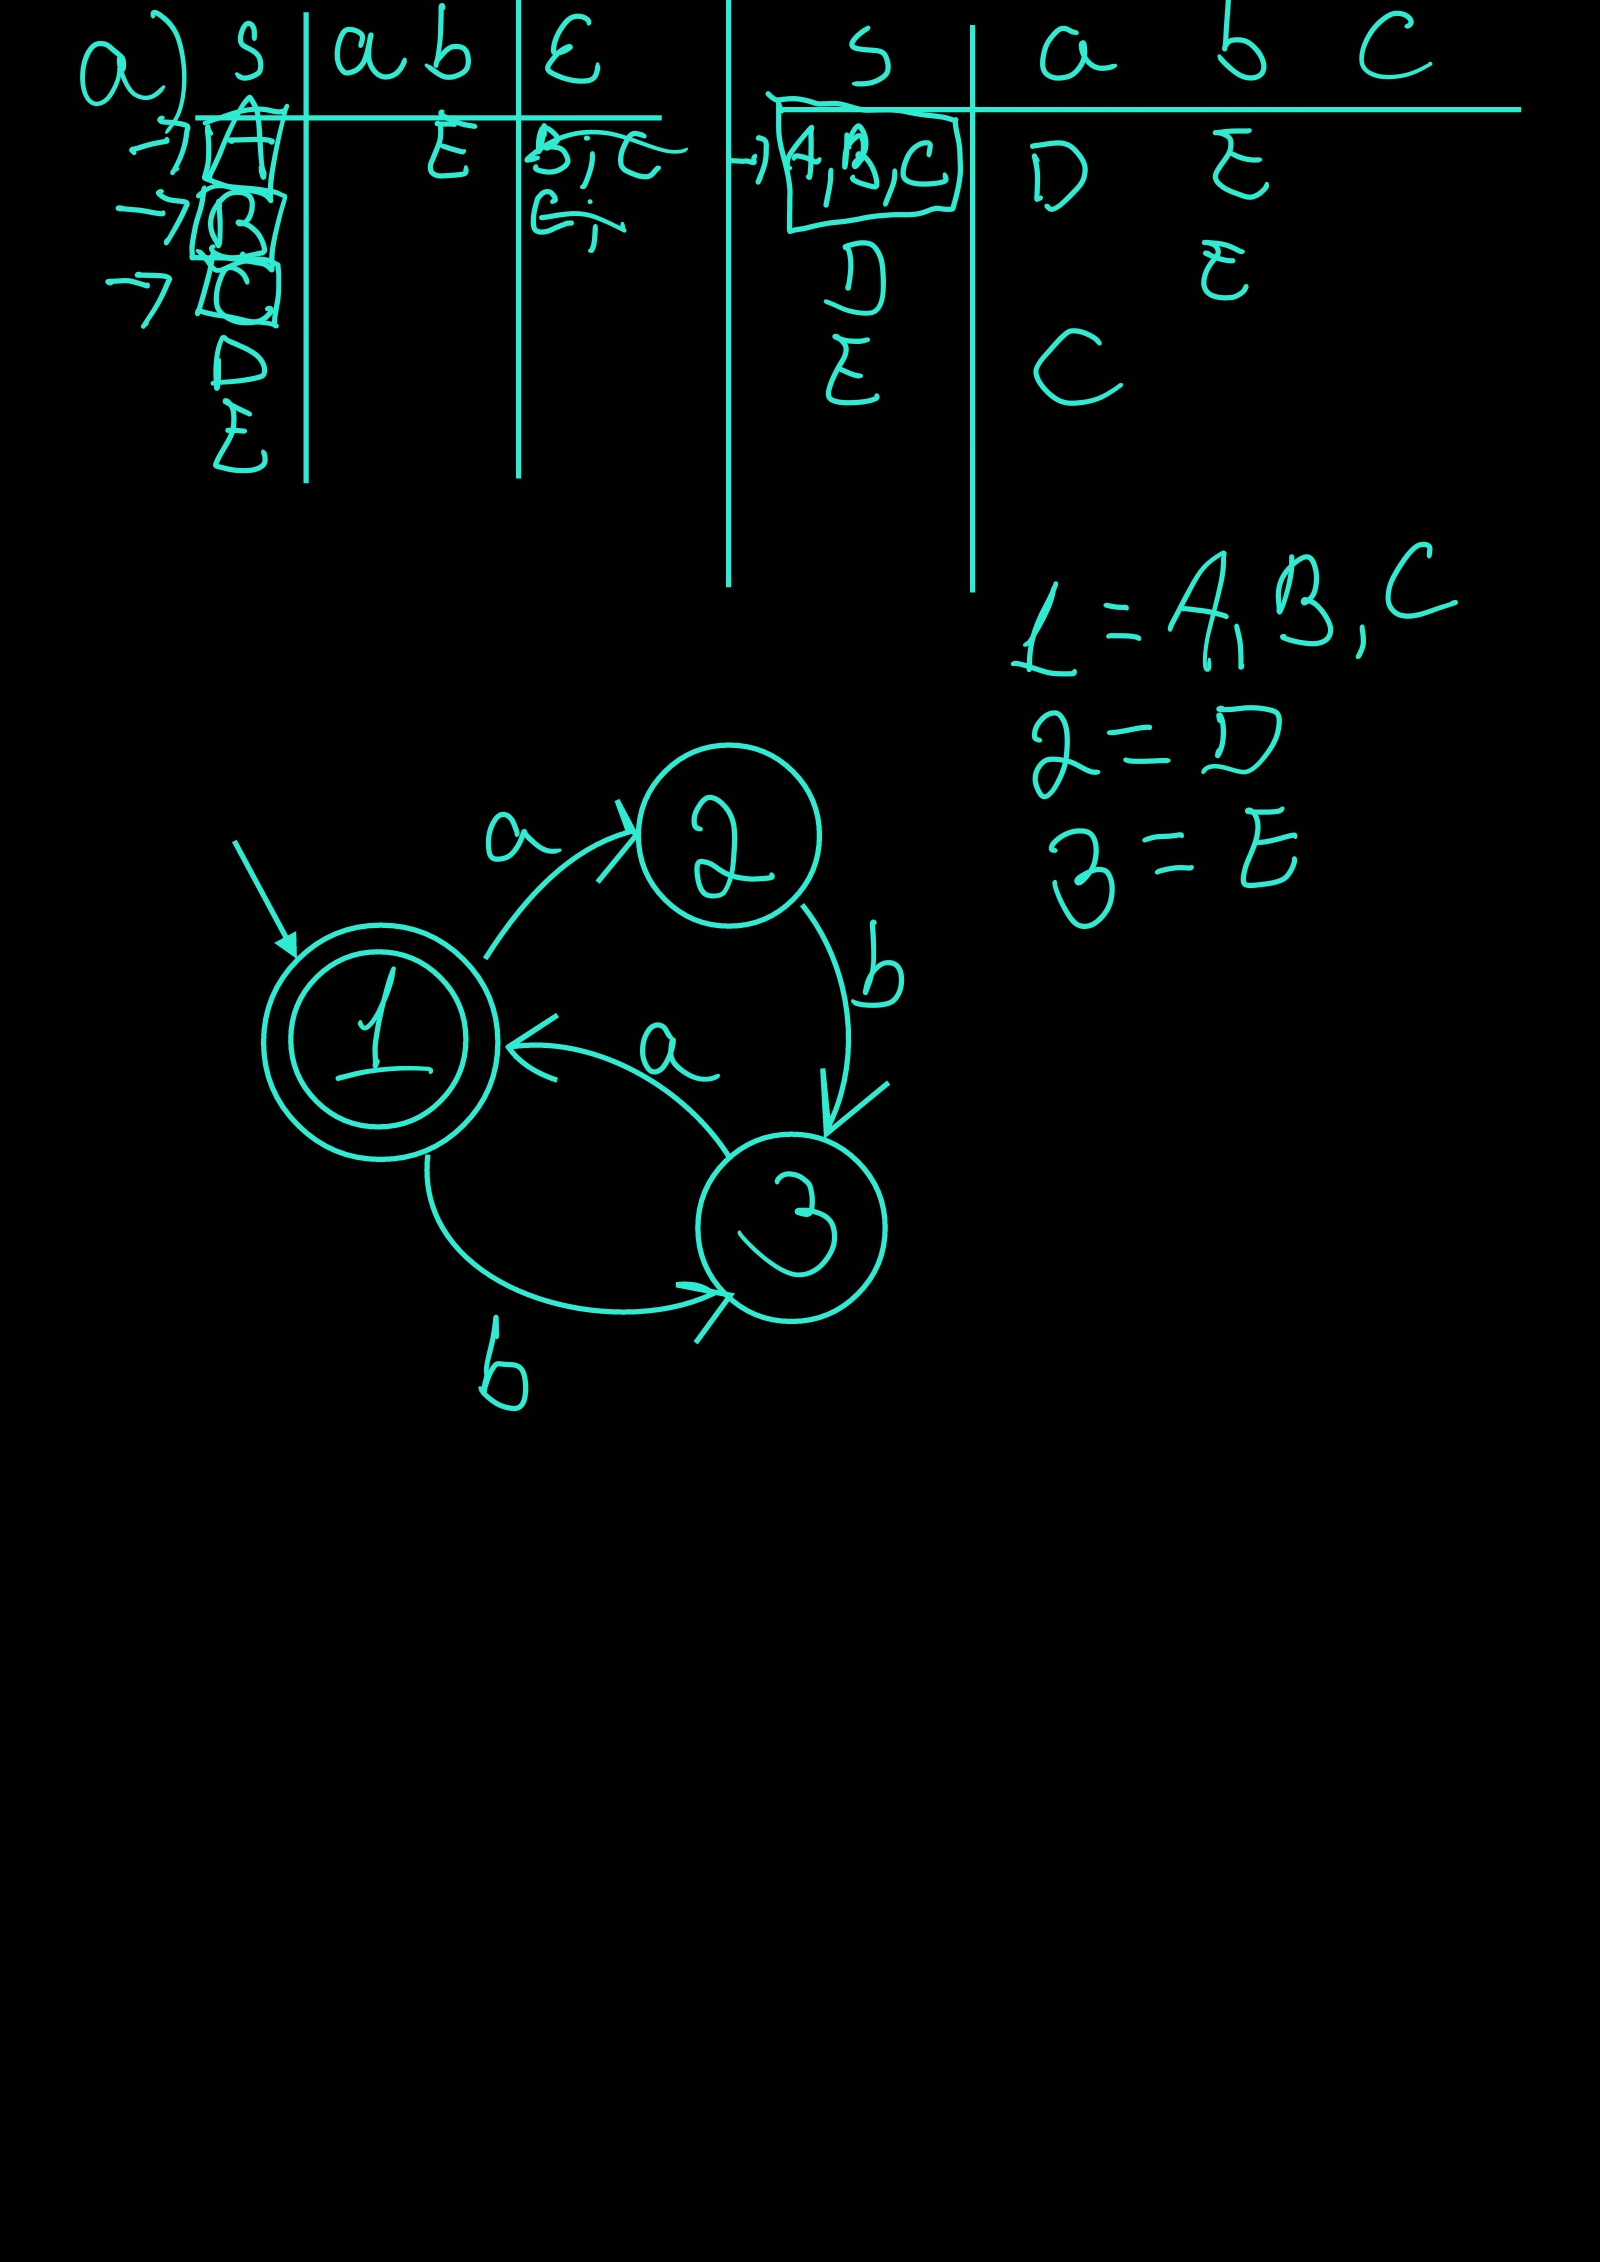 a) S a b ε
→ A E B; C
→ B C;
→ C
D
E
S a b C
→ A, B, C D E
D E
E C
1 = A, B, C
2 = D
3 = E
a 2
b
1 a
3
b